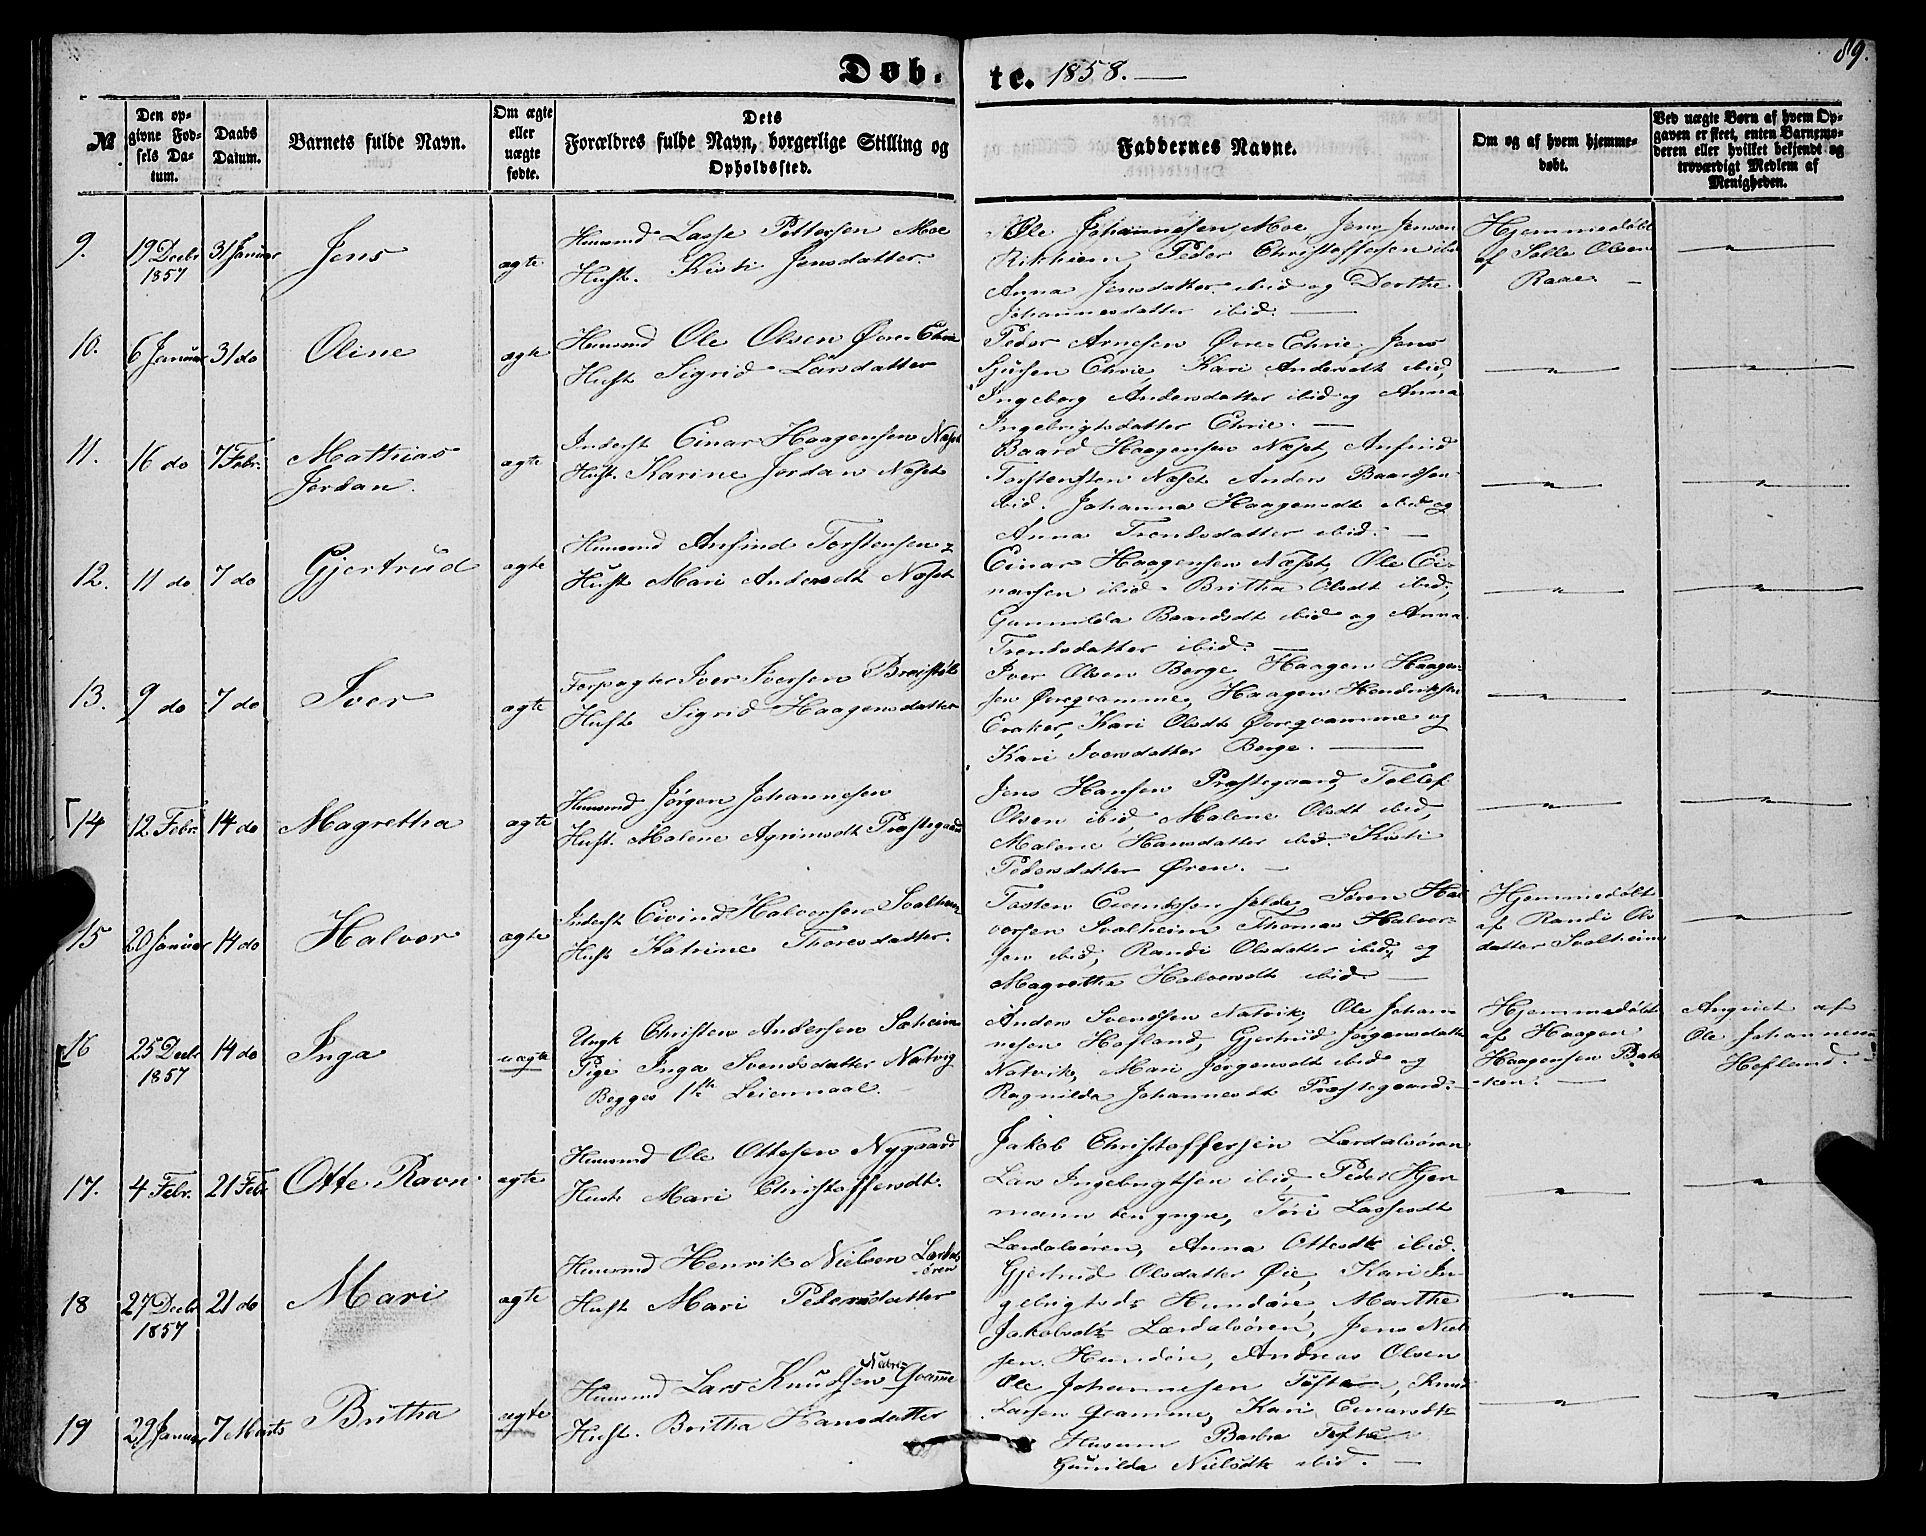 89.
Døb. te. 1858. —
№
Den op-
givne Fød-
sels Da-
tum.
Daabs
Datum.
Barnets fulde Navn.
Om ægte
eller
uægte
fødte.
Dets
Forældres fulde Navn, borgerlige Stilling og
Opholdssted.
Faddernes Navne.
Om og af hvem hjemme-
døbt.
Ved uægte Børn af hvem Op-
gaven er skeet, enten Barnemo-
deren eller hvilket bekjendt og
troværdigt Medlem af
Menigheden.
9.
19 Decbr
1857
31 Januar
Jens
ægte
Huusmd Lasse Pettersen Moe
Hust. Kisti Jensdatter
Ole Johannesen Moe Jens Jensen
Peder Christoffersen ibid
Anna Jensdatter ibid og Dorthe
Johannesdatter ibid. —
Hjemmedøbt
af Olsen
Raae —
10.
6 Januar
31 do
Oline
ægte
Huusmd Ole Olsen Øvre Ehrie
Hust Sigrid Larsdatter
Peder Arnesen Øvre Ehrie, Jens
Ehrie, Kari Andersdt ibid,
Ingeborg Andersdatter ibid og Anna
Ingebrigtsdatter Ehrie. —
11.
16 do
7 Febr.
Mathias
Jordan.
ægte
Inderst Einar Haagensen Næset
Hust. Karine Jordan Næset
Baard Haagensen Næset, Anfind
Torstensen Næset Anders Baardsen
ibid. Johanna Haagensdt ibid og
Anna Trondsdatter ibid. —
12.
11 do
7 do
Gjertrud
ægte
Huusmd Anfind Torstensen
Hust Mari Andersdt Næset
Einar Haagensen Næset, Ole Ei-
narsen ibid Britha Olsdt ibid,
Gunnilda Baardsdt ibid og Anna
Trondsdatter ibid. —
13.
9 do
7 do
Iver
ægte
Forpagter Iver Iversen
Hust Sigrid Haagensdatter
Iver Olsen Berge, Haagen Haagen-
sen Øvreqvamme, Haagen Hendriksen
Eraker, Kari Olsdt Øvreqvamme og
Kari Iversdatter Berge. —
14
12 Febr.
14 do
Magretha
ægte
Huusmd Jørgen Johannesen
Hust. Malene Præstegaard
Jens Hansen Præstegaard, Tollef
Olsen ibid, Malene Olsdt ibid,
Malene Hansdatter ibid. Kisti
Pedersdatter Øren. —
15
20 Januar
14 do
Halvor
ægte
Inderst Eivind Halvorsen Soalheim
Hust Katrine Thoresdatter.
Søren Hal-
vorsen Soalheim Thomas Halvor-
sen ibid, Randi Olsdatter ibid, og
Magretha Halvorsdt ibid —
Hjemmedøbt
af Randi Ols
datter Soalheim
16
25 Decbr
1857
14 do
Inga
uægte
Ungk Christen Andersen
Pige Inga Svendsdatter Natvig
Begges 1ste Leiermaal.
Anders Svendsen Natvik, Ole Johan-
nesen Hofland, Gjertrud Jørgensdatter
Natvik, Mari Jørgensdt ibid og
Ragnilda Johannesdt Præstegaard. —
Hjemmedøbt
af Haagen
Haagensen Bak-
ken. —
Angivet af
Ole Johannesen
Hofland.
17.
4 Febr.
21 Febr
Otte Ravn.
ægte
Huusmd Ole Ottesen Nygaard
Hust Mari Christoffersdt.
Jakob Christoffersen Lærdalsøren
Lars Ingebrigtsen ibid, Peder Hjer-
mann den yngre, Lassesdt
Lærdalsøren, Anna Ottesdt ibid.
18
27 Decbr
1857
21 do
Mari
ægte
Huusmd Henrik Nielsen Lærdals
øren
Hust Mari Pedersdatter
Gjertrud Olsdatter Øie, Kari In-
gebrigtsdt Hundere, Marthe
Jakobsdt Lærdalsøren, Jens Niel-
sen. Hundere, Andreas Olsen
19
29 Januar
7 Marts
Britha
ægte
Huusmd Lars Knudsen Nedre Qvamme
Hust. Britha Hansdatter
Ole Johannesen Tofte, Knud
Larsen Qvamme, Kari Einarsdt
Husum Barbra Tofte
Gunilda Nielsdt ibid. —